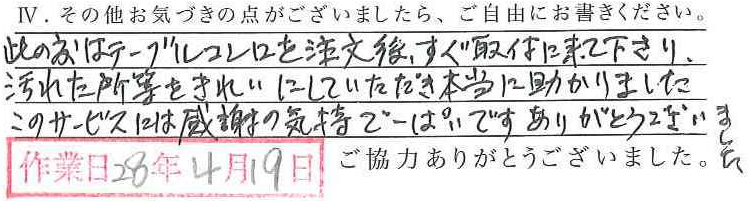 Ⅳ．その他お気づきの点がございましたら、ご自由にお書きください。
此の度はテーブルコンロを注文後、すぐ取付に来て下さり、
汚れた所等をきれいにしていただき本当に助かりました
このサービスには感謝の気持で一ぱいです ありがとうございました
作業日28年4月19日
ご協力ありがとうございました。